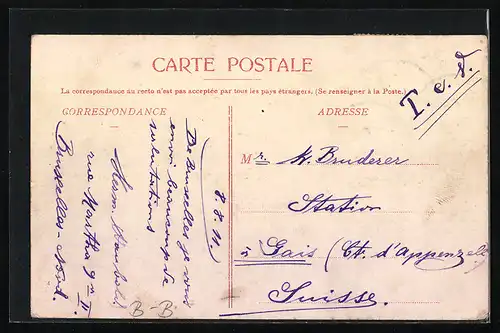 CARTE POSTALE
La correspondance au recto n'est pas acceptée par tous les pays étrangers. (Se renseigner à la Poste.)
CORRESPONDANCE
ADRESSE
T. c. v.
8.8.11
De Bruxelles je vous
envoi beaucoup de
salutations
Herm.
rue Martha 9
Bruxelles-Nord.
B-B
Mr. K. Bruderer
Station
à Gais (Ct. d'Appenzell
Suisse.